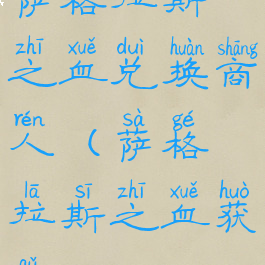 萨格拉斯
zhī xuě duì huàn shāng
之血兑换商
rén sà gé
人（萨格
lā sī zhī xuě huò
拉斯之血获